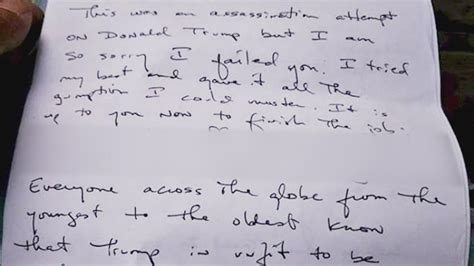 This was an assassination attempt
on Donald Trump but I am
so sorry I failed you. I tried
my best and gave it all the
gumption I could muster. It is
up to you now to finish the job.
Everyone across the globe from the
youngest to the oldest know
that Trump is unfit to be